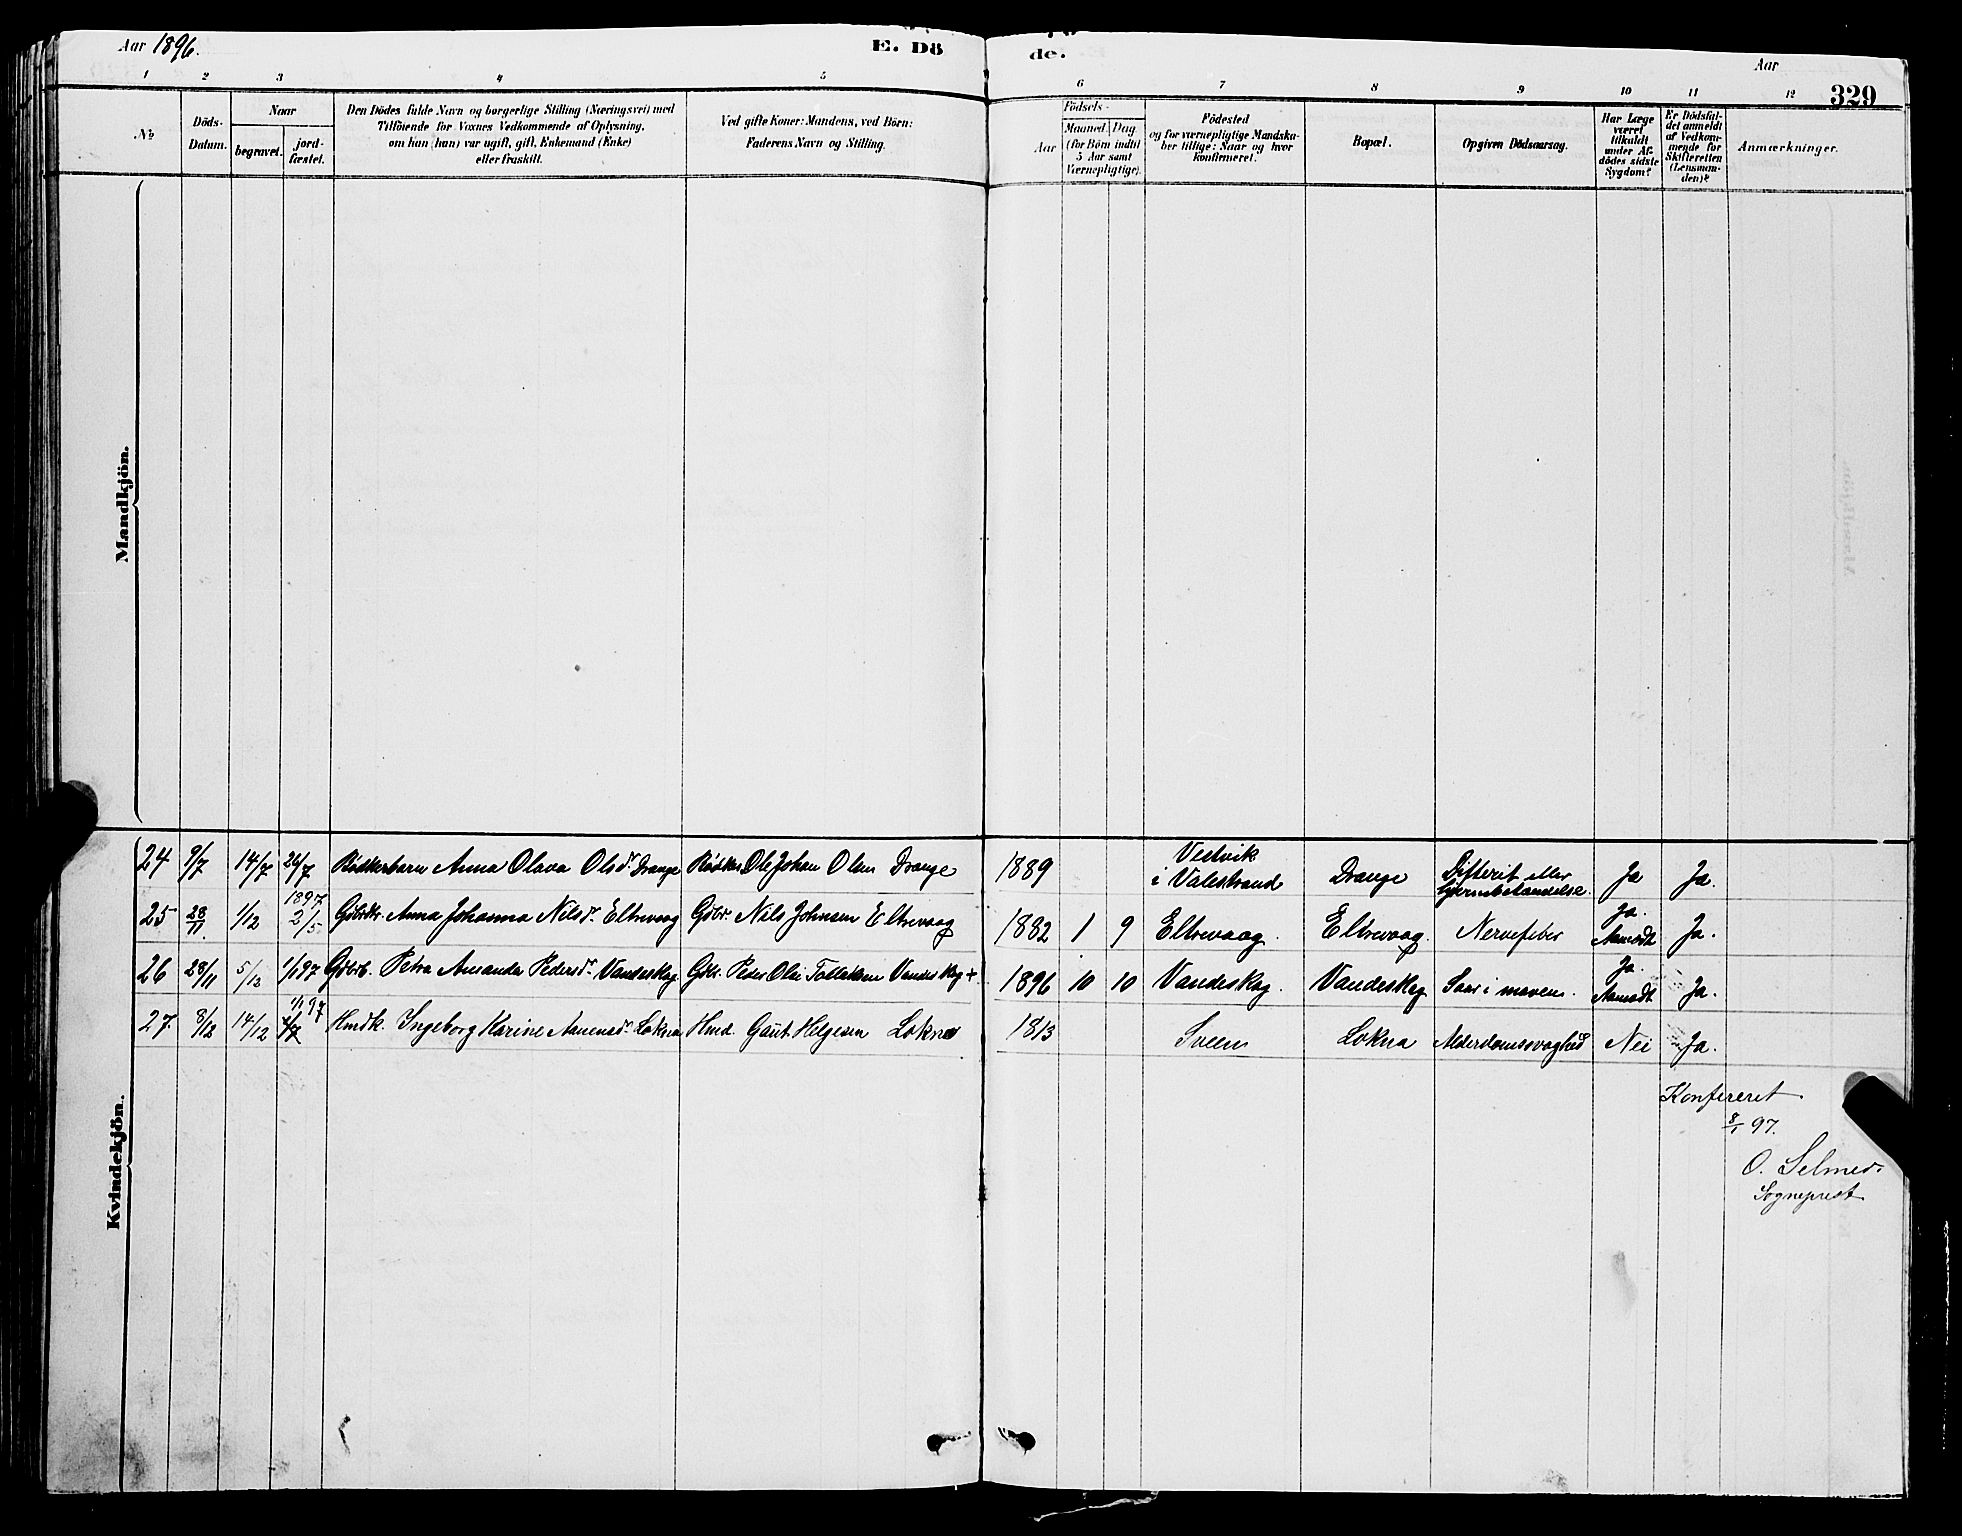 Aar 1896.
E. Dö
de.
Aar
329
1 2 3 4 5 6 7 8 9 10 11 12
No
Döds-
Datum.
Naar
begravet.
jord-
fæstet.
Den Dödes fulde Navn og borgerlige Stilling (Næringsvei) med
Tilföiende for Voxnes Vedkommende af Oplysning,
om han (hun) var ugift, gift, Enkemand (Enke)
eller fraskilt.
Ved gifte Koner: Mandens, ved Börn:
Faderens Navn og Stilling.
Födsels-
Aar
Maaned.
Dag
(for Börn indtil
5 Aar samt
Værnepligtige).
Födested
og for værnepligtige Mandska-
ber tillige: Naar og hvor
konfirmeret.
Bopæl.
Opgiven Dödsaarsag.
Har Læge
været
tilkaldt
under Af-
dödes sidste
Sygdom?
Er Dödsfal-
det anmeldt
af Vedkom-
mende for
Skifteretten
(Lensman-
den)?
Anmærkninger.
Mandkjön.
Kvindekjön.
24 9/7 14/7 26/7 Anna Olava Olsdr Drange Ole Johan Olsen Drange 1889 Vestvik
i Valestrand Drange Difterit eller
Ja Ja.
25 28/11 1/12 1897
2/5 Anna Johanna Nilsdr. Eltrevaag Gdbr. Nils Johnsen Eltrevaag 1882 1 9 Eltrevaag. Eltrevaag. Nervefeber Ja.
Aamodt Ja.
26 28/11 5/12 1/1 97 Gdbrb. Petra Amanda Pedersdr. Vandeskog Gdbr. Peder Olai Tollaksen Vandeskog + 1896 10 10 Vandeskog. Vandeskog Saar i maven. Ja.
Aamodt Ja.
27. 8/12 14/12 1/1 97 Hmdk. Ingeborg Karine Aanensdr. Lokna Hmd. Gaut Helgesen Lokna 1813 Sveen Lokna Alderdomssvaghed Nei Ja.
Konfereret
8/1 97.
O. Selmer
Sogneprest